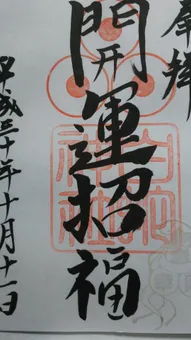 奉拝
開運招福
平成三十年十月十一日